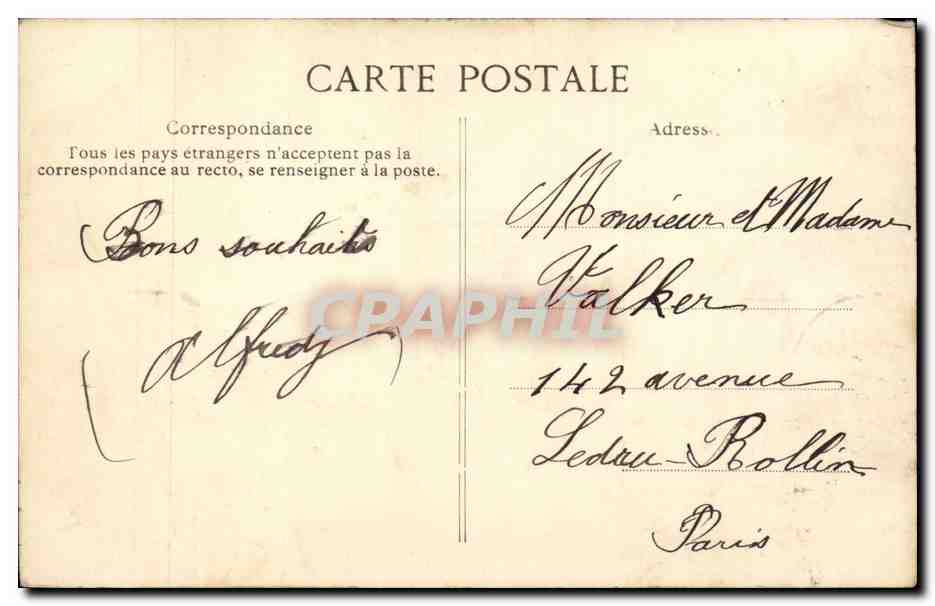 CARTE POSTALE
Correspondance
Tous les pays étrangers n'acceptent pas la
correspondance au recto, se renseigner à la poste.
Bons souhaits
Alfred
Adress
Monsieur et Madame
Valker
142 avenue
Ledru-Rollin
Paris
CPAPHIL